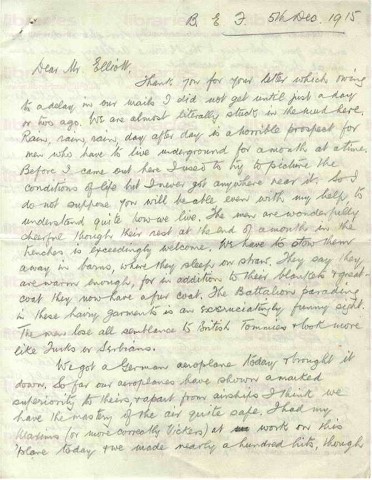 B E F 5th Dec. 1915
Dear Mr Elliott,
Thank you for your letter which owing
to a delay in our mails I did not get until just a day
or two ago. We are almost literally stuck in the mud here.
Rain, rain, rain, day after day is a horrible prospect for
men who have to live underground for a month at a time.
Before I came out here I used to try to picture the
conditions of life but I never got anywhere near it. So I
do not suppose you will be able even with my help, to
understand quite how we live. The men are wonderfully
cheerful though their rest at the end of a month in the
trenches is exceedingly welcome. We have to stow them
away in barns, where they sleep on straw. They say they
are warm enough, for in addition to their blankets & great-
coat they now have a fur coat. The Battalion parading
in these hairy garments is an excruciatingly funny sight.
The men lose all semblance to British Tommies & look more
like Turks or Serbians.
We got a German aeroplane today & brought it
down. So far our aeroplanes have shown a marked
superiority to theirs, & apart from airships I think we
have the mastery of the air quite safe. I had my
Maxims (or more correctly Vickers) at work on this
'plane today & we made nearly a hundred hits, though